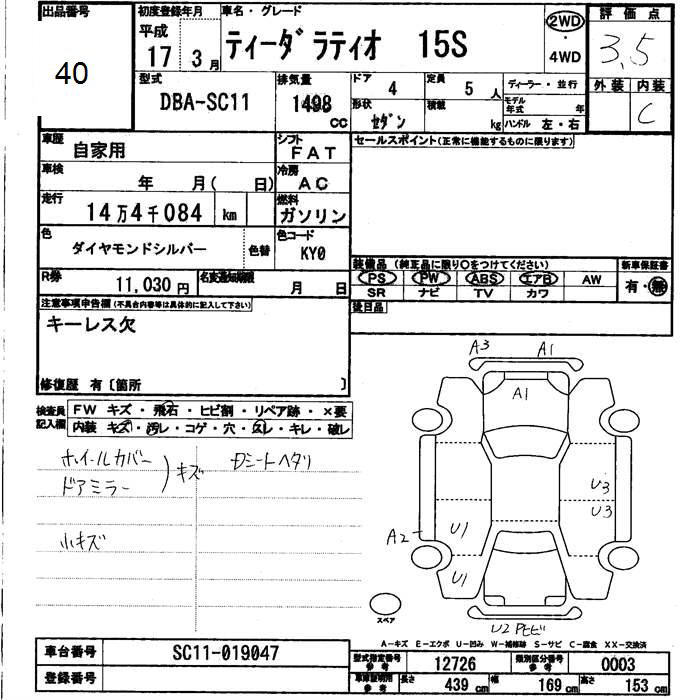 出品番号 初度登録年月 車名・グレード 評価点
40 平成 17 3月 ティーダ ラティオ 15S 2WD ・ 4WD 3.5
型式 排気量 ドア 4 定員 5人 ディーラー・並行 外装 内装
DBA-SC11 1498 CC 形状 セダン 積載 kg モデル年式 年 C
ハンドル 左・右
車歴 自家用 シフト FAT セールスポイント(正常に機能するものに限ります)
車検 年 月( 日) 冷房 AC
走行 14万4千084 km 燃料 ガソリン
色 ダイヤモンドシルバー 色替 色コード KY0
装備品 (純正品に限り○をつけてください) 新車保証書
R券 11,030円 名変通知期限 月 日 PS PW ABS エアB AW 有・無
SR ナビ TV カワ
注意事項申告欄(不具合内容等は具体的に記入して下さい) 後日品
キーレス欠
修復歴 有〔箇所 〕
検査員記入欄 FW キズ・飛石・ヒビ割・リペア跡・×要
内装 キズ・汚レ・コゲ・穴・スレ・キレ・破レ
ホイールカバー
ドアミラー
キズ
Dシートヘタリ
小キズ
A3 A1
A1
U3
U3
U1
A2
U1
スペア
U2
A-キズ E-エクボ U-凹み W-補修跡 S-サビ C-腐食 XX-交換済
車台番号 SC11-019047
登録番号
型式指定番号 参考 12726 類別区分番号 参考 0003
車庫証明用 参考 長さ 439cm 幅 169cm 高さ 153cm